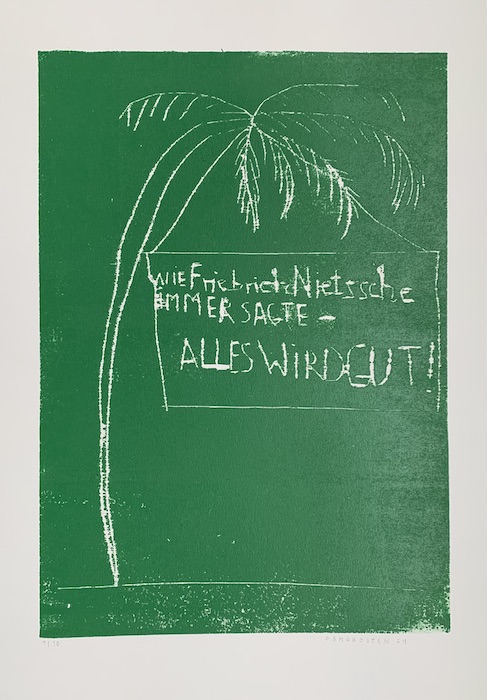 WIE Friebrich Nietzsche
IMMER SAGTE –
ALLES WIRD GUT!